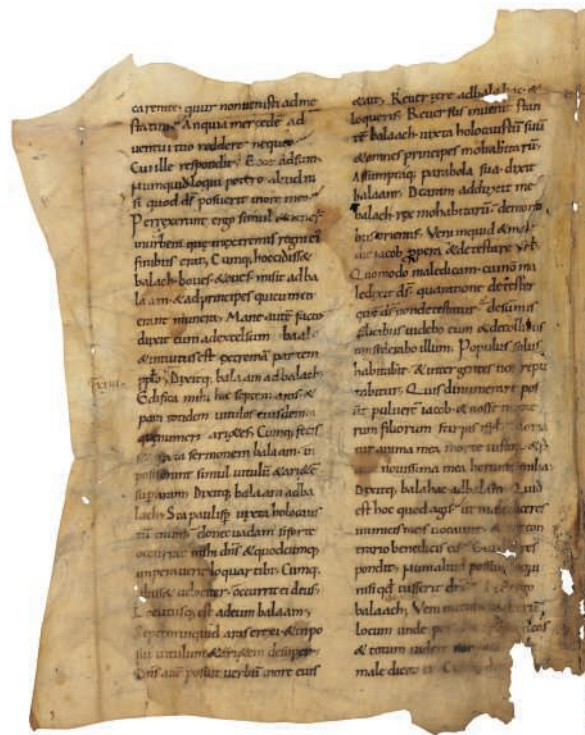 carente. quur non venisti ad me
statim. An quia mercedē ad
ventui tuo reddere nequeo.
Cui ille respondit. Ecce adsum
numquid loqui potero aliud ni
si quod ds posuerit in ore meo.
Perrexerunt ergo simul &
in urbem que in extremis regni ei
finibus erat, Cumq, hoccidiss&
balach. boves. & oves. misit ad ba
laam. & ad principes qui cum eo
erant munera. Mane autē facto
duxit eum ad excelsum baal
& intuitus est extremā partem
ppli. Dixitq, balaam ad balach.
Edifica mihi hic septem aras. &
para totidem vitulos eiusdemq
numeri ari&es, Cumq, fecis
s& iuxta sermonem balaam. in
posuerunt simul vitulū & ari&ē
sup aram. Dixitq, balaam ad ba
lach. Sta paulisp iuxta holocaus
tū tuum. donec vadam si forte
occurrat mihi dns & quodcumq,
imperaverit loquar tibi. Cumq,
abiiss& velociter. occurrit ei deus.
Locutusq, est ad eum balaam,
Septem inquid aras erexi. & inpo
sui vitulum & ari&em desuper.
Dns autē posuit verbū in ore eius
& ait. Revertere ad balahac. &
loqueris. Reversus invenit stan
tē balaach. iuxta holocaustū suū
& omnes principes mohabitarū.
Assumptaq, parabola sua. dixit
balaam. De aram adduxit me
balach. rex mohabitarū. de monti
bus orientis. Veni inquid & male
dic iacob. propera & detestare
Quomodo maledicam. cui nō ma
ledixit ds. qua ratione detester
quē ds non detestatur. de summis
silicibus videbo eum & de collibus
considerabo illum. Populus solus
habitabit. & inter gentes non repu
tabitur. Quis dinumerare pos
sit pulverē iacob. & nosse nume
rum filiorum stirpis isrl. moria
tur anima mea morte iustorū. & fi
novissima mea horum similia
Dixitq, balahac ad balaam. Quid
est hoc quod agis. ut malediceres
inimicis meis vocavi te. & tu e con
trario benedicis eis. Cui ille res
pondit. Num aliud possum loqui
nisi qd iusserit dns. Dixit ergo
balaach. Veni mecum in alterū
locum unde
& totum videre non
male dicito ei. Cumq,